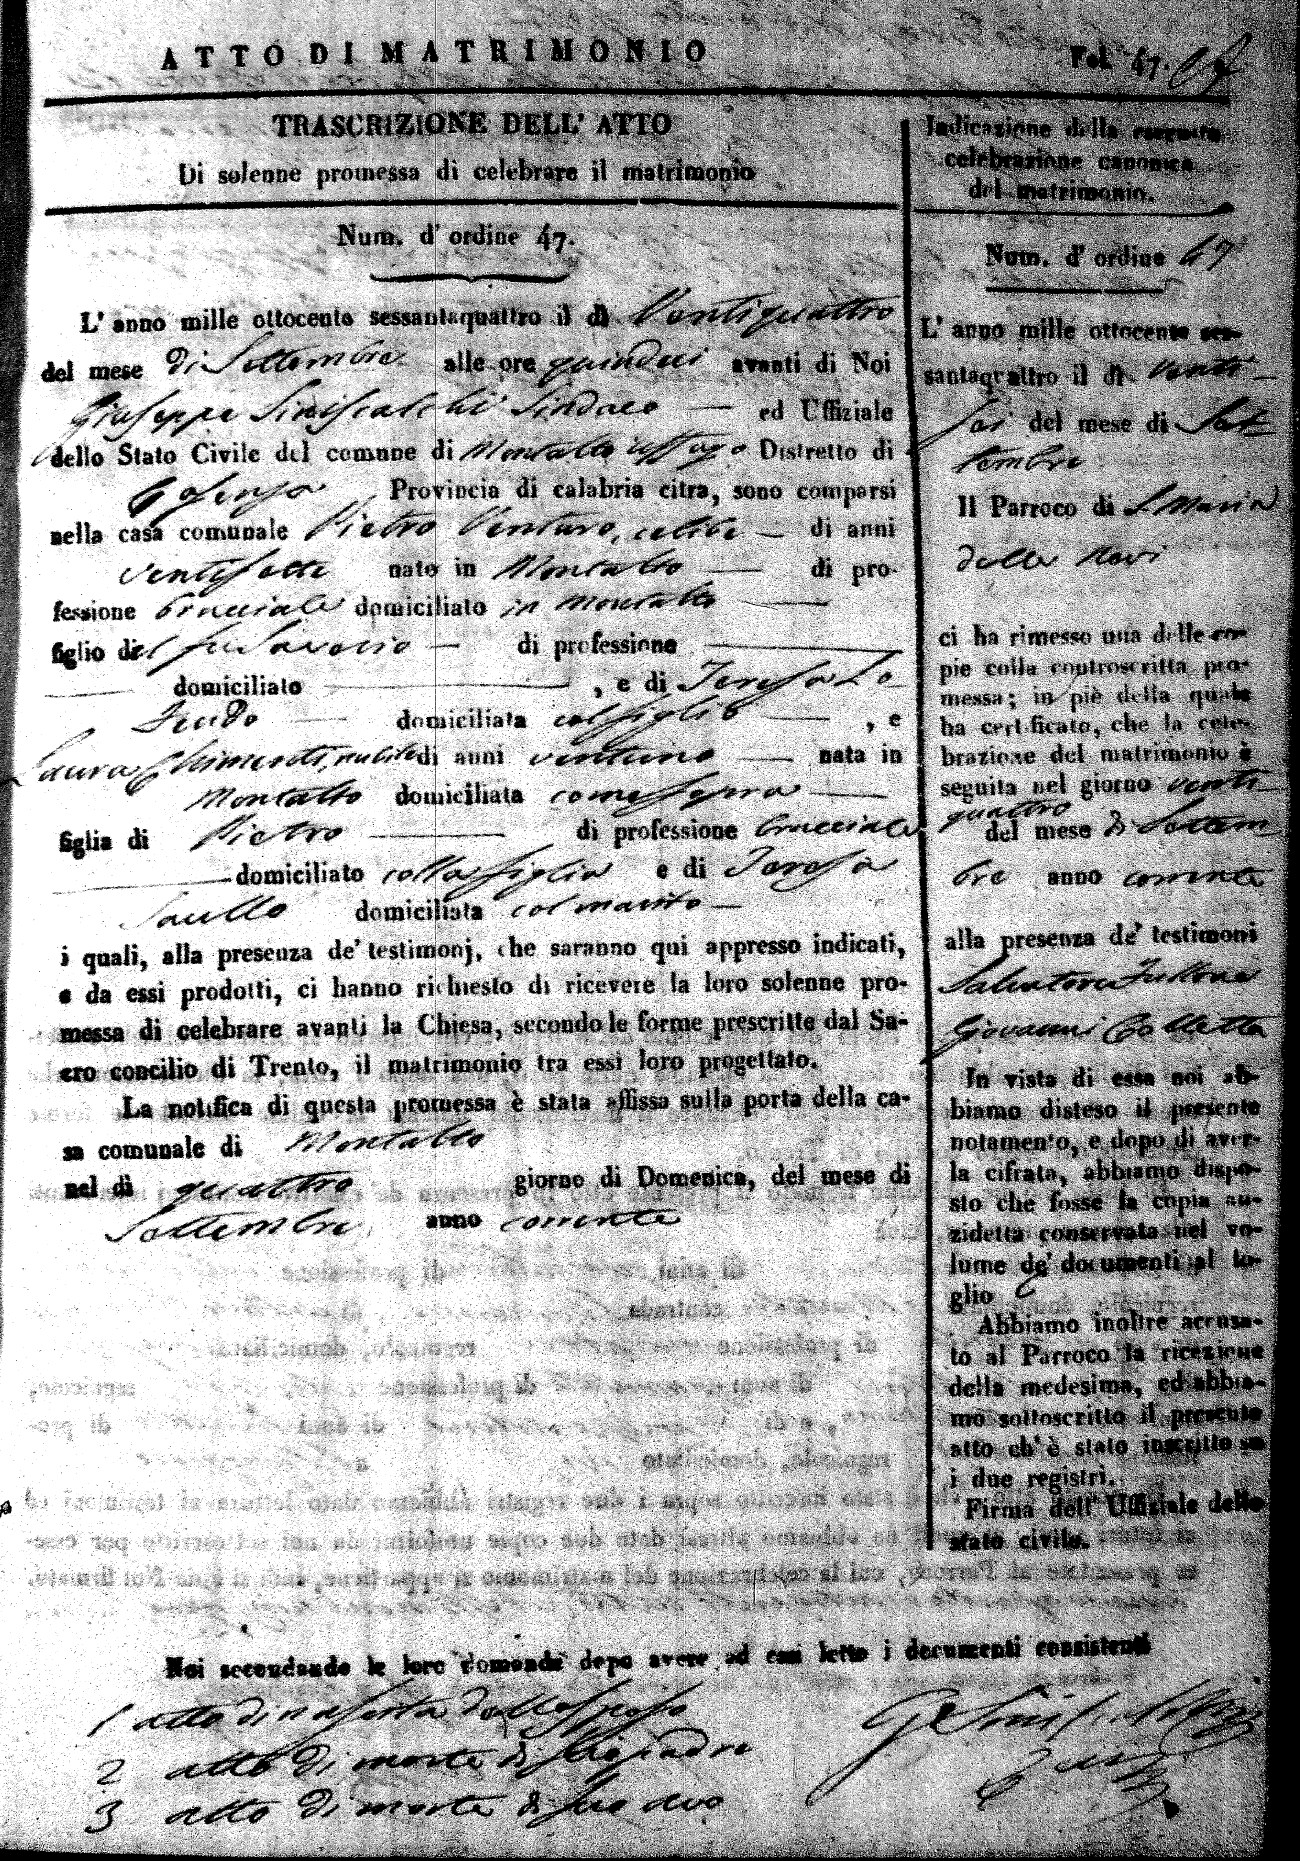 ATTO DI MATRIMONIO
Fol. 47.
TRASCRIZIONE DELL' ATTO
Di solenne promessa di celebrare il matrimonio
Num. d' ordine 47.
L' anno mille ottocento sessantaquattro il di Ventiquattro
del mese di Settembre alle ore quindeci avanti di Noi
Giuseppe Siniscalchi Sindaco — ed Uffiziale
dello Stato Civile del comune di Montalto uffugo Distretto di
Cosenza Provincia di calabria citra, sono comparsi
nella casa comunale Pietro Venturo, celibe — di anni
ventisette nato in Montalto — di pro-
fessione bracciale domiciliato in Montalto —
figlio del fu Saverio — di professione —
— domiciliato — , e di Teresa Lo
Feudo — domiciliata col figlio — , e
Laura Chimenti, nubile di anni ventuno — nata in
Montalto domiciliata come sopra —
figlia di Pietro — di professione bracciale
— domiciliato colla figlia e di Teresa
Saullo domiciliata col marito —
i quali, alla presenza de' testimonj, che saranno qui appresso indicati,
e da essi prodotti, ci hanno richiesto di ricevere la loro solenne pro-
messa di celebrare avanti la Chiesa, secondo le forme prescritte dal Sa-
cro concilio di Trento, il matrimonio tra essi loro progettato.
La notifica di questa promessa è stata affissa sulla porta della ca-
sa comunale di Montalto
nel dì quattro giorno di Domenica, del mese di
Settembre anno corrente
Noi secondando le loro domande dopo avere ad essi letto i documenti consistenti
1 atto di nascita dello sposo
2 atto di morte di suo padre
3 atto di morte di suo avo
Indicazione della seguita
celebrazione canonica
del matrimonio.
Num. d' ordine 47
L' anno mille ottocento ses-
santaquattro il di venti-
sei del mese di Set-
tembre
Il Parroco di S. Maria
della Nevi
ci ha rimesso una delle co-
pie colla controscritta pro-
messa; in piè della quale
ha certificato, che la cele-
brazione del matrimonio è
seguita nel giorno venti-
quattro
del mese di Settem-
bre anno corrente
alla presenza de' testimoni
Salvatore
Giovanni Colletta
In vista di essa noi ab-
biamo disteso il presente
notamento, e dopo di aver-
la cifrata, abbiamo dispo-
sto che fosse la copia an-
zidetta conservata nel vo-
lume de' documenti al fo-
glio
Abbiamo inoltre accusa-
to al Parroco la ricezione
della medesima, ed abbia-
mo sottoscritto il presente
atto ch' è stato inscritto su
i due registri.
Firma dell' Uffiziale dello
stato civile.